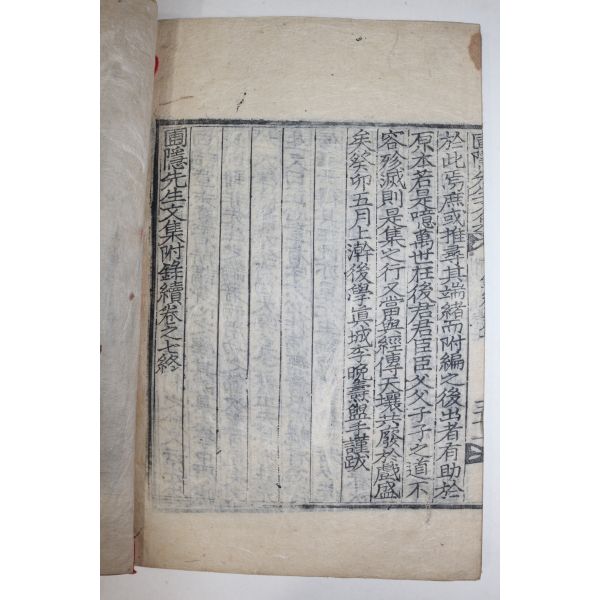 圃隱先生文集
於此焉庶或推尋其端緖而附編之後出者有助於
原本若是噫萬世在後君君臣臣父父子子之道不
容殄滅則是集之行又當與經傳天壤共廢於戲盛
矣癸卯五月上澣後學眞城李晩燾盥手謹跋
圃隱先生文集附錄續卷之七終